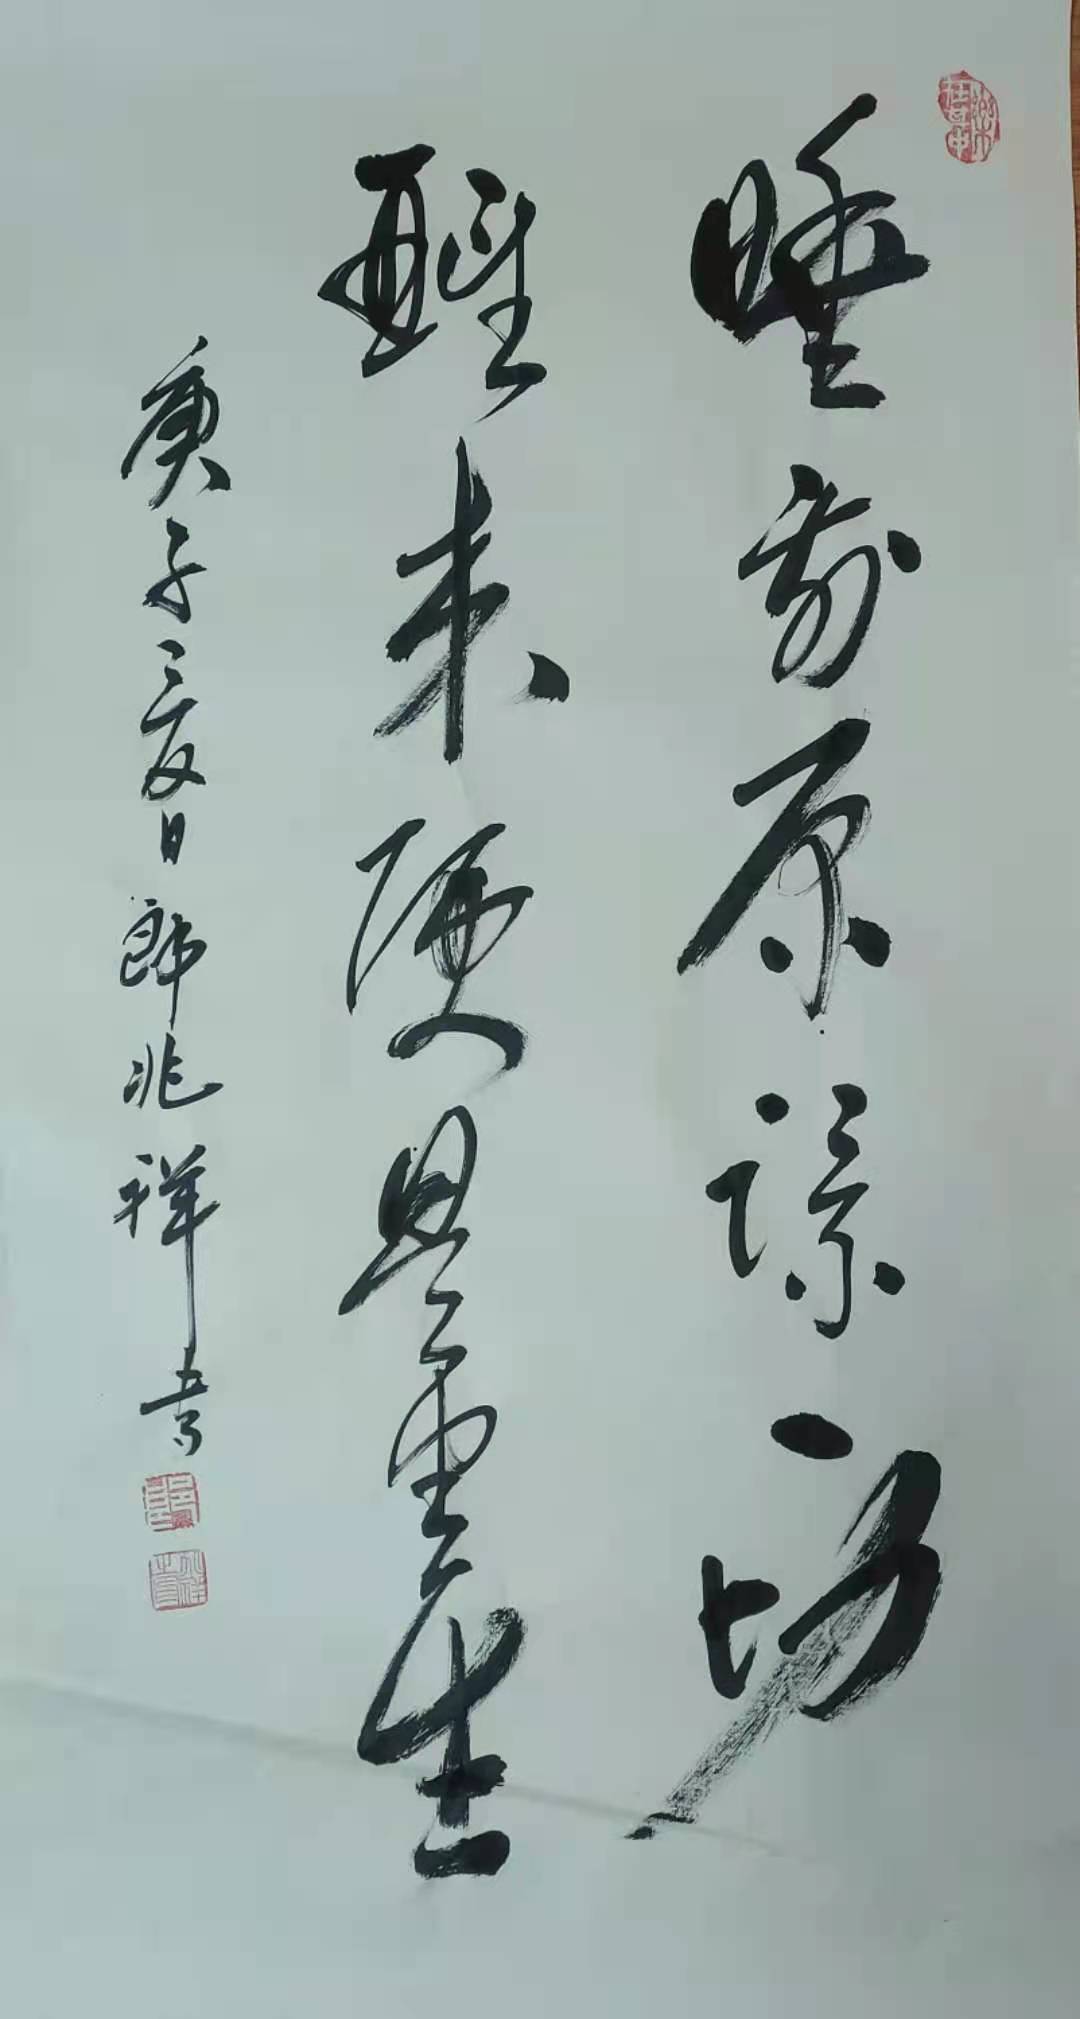 睡前原谅一切
醒来便是重生
庚子夏日郎兆祥书